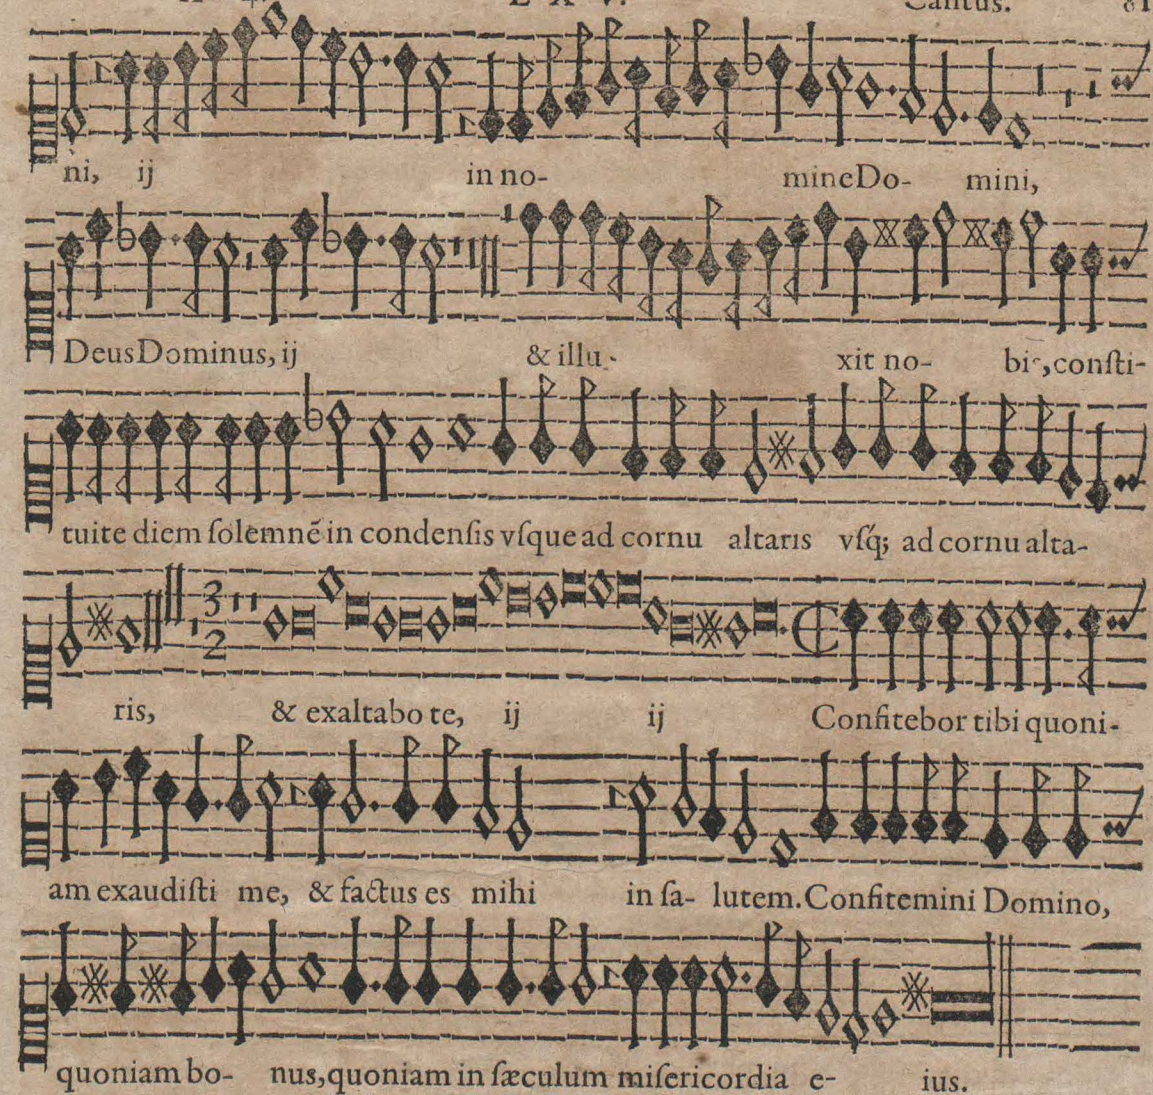 L X V. Cantus. 81
ni, ij in no- mine Do- mini,
Deus Dominus, ij & illu- xit no- bis, conſti-
tuite diem ſolemnẽ in condenſis vſque ad cornu altaris vſq́; ad cornu alta-
3
2
ris, & exaltabo te, ij ij Confitebor tibi quoni-
am exaudiſti me, & factus es mihi in ſa- lutem. Confitemini Domino,
quoniam bo- nus, quoniam in ſæculum miſericordia e- ius.